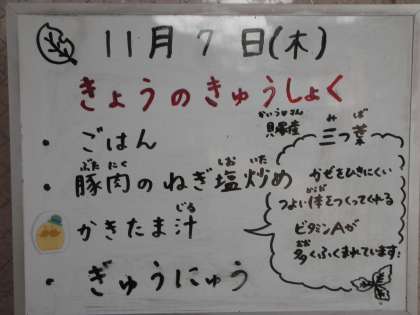 11月7日(木)
きょうのきゅうしょく
・ごはん
・豚肉のねぎ塩炒め
ぶた にく しお いた
かきたま汁
じる
・ぎゅうにゅう
かいづかさん
貝塚産
み ば
三つ葉
かぜをひきにくい
つよい体をつくってくれる
からだ
ビタミンAが
多くふくまれています!
おお